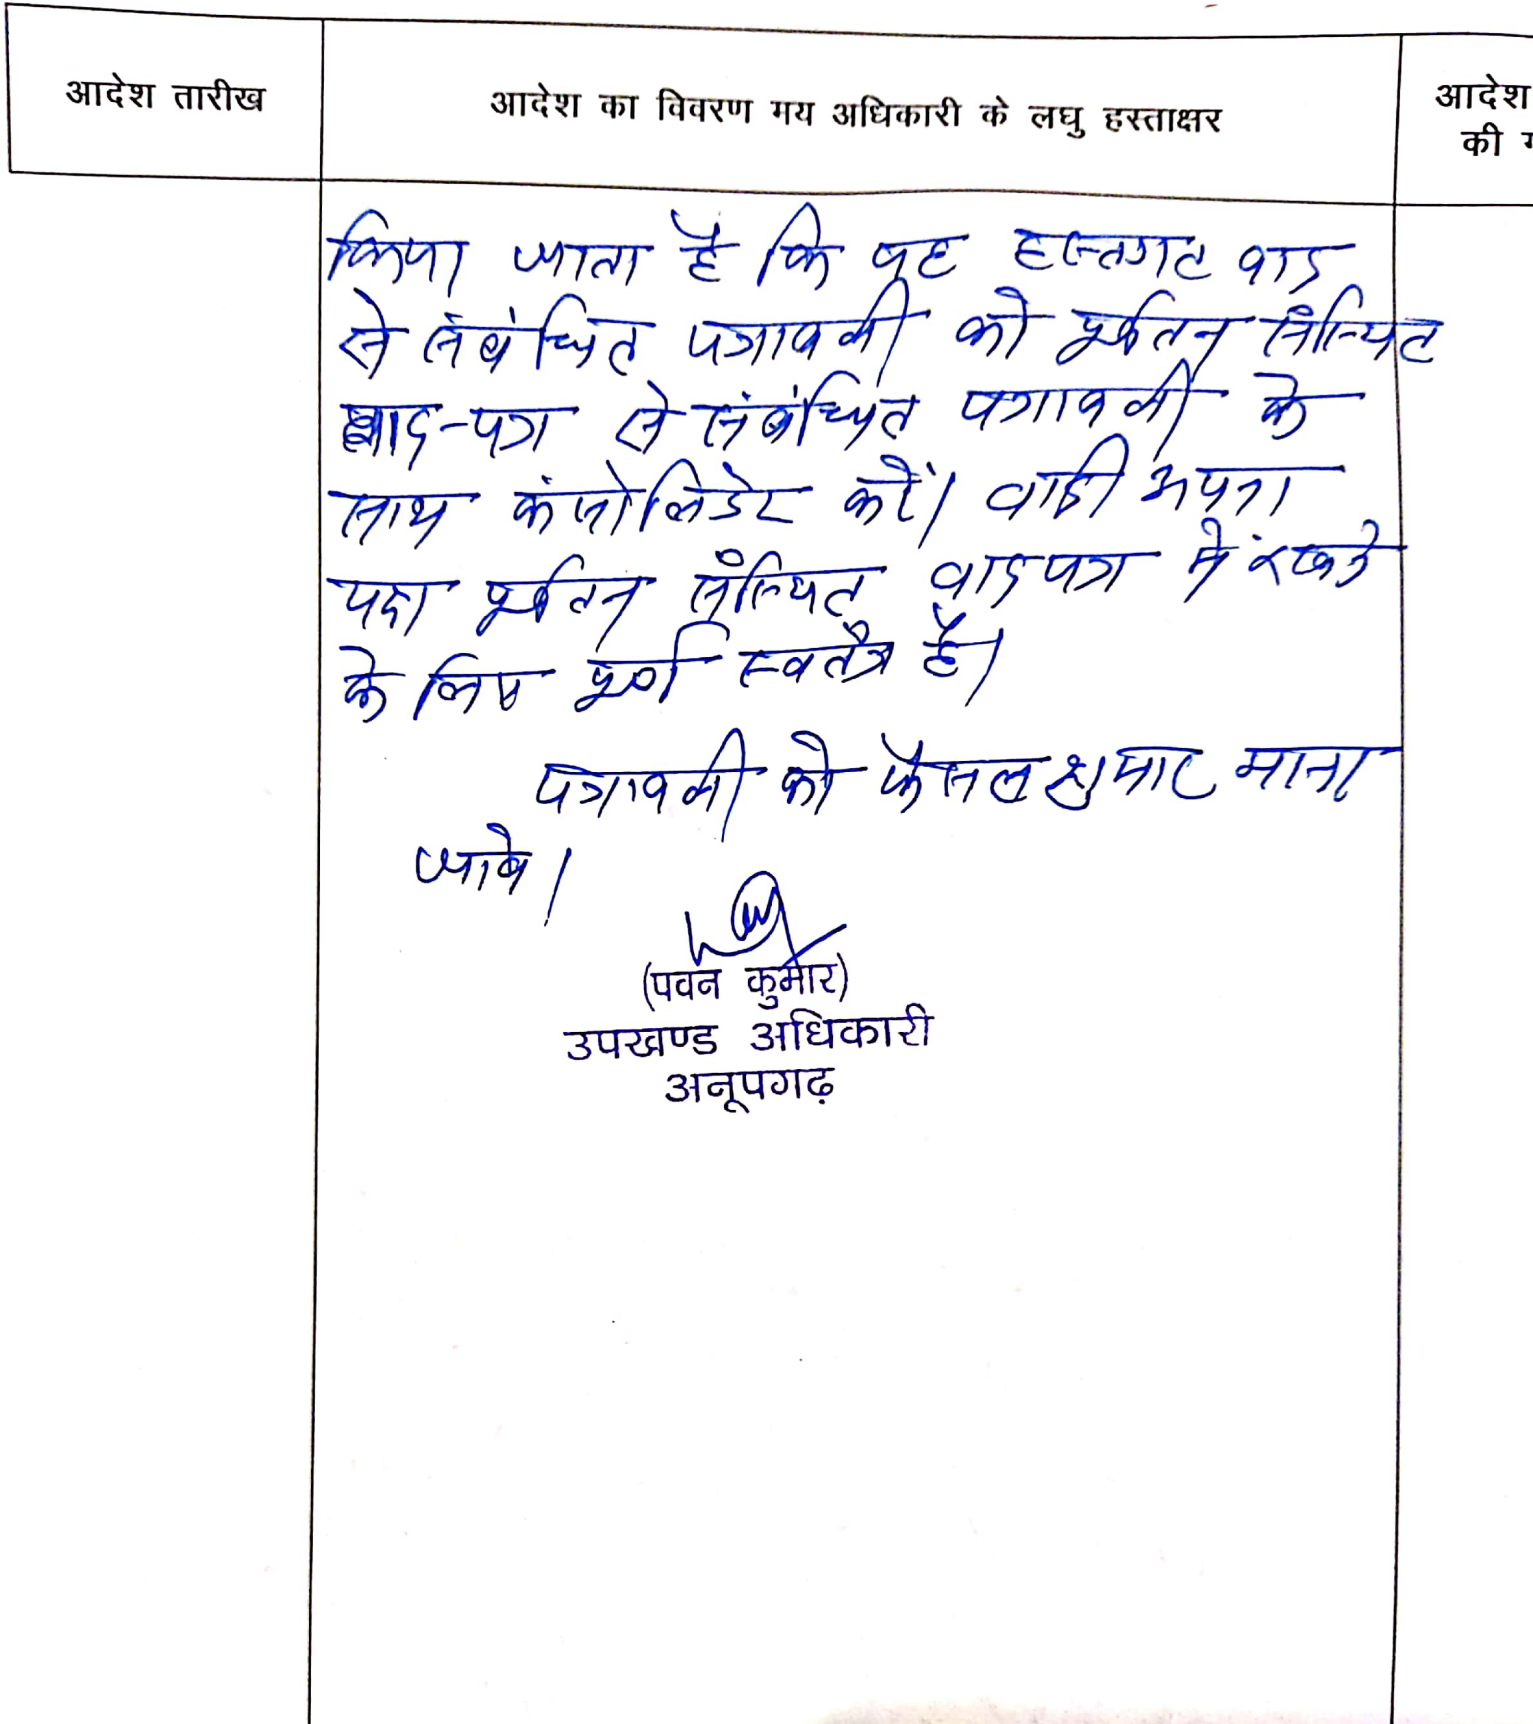 आदेश तारीख
आदेश का विवरण मय अधिकारी के लघु हस्ताक्षर
आदेश
की
किया जाता है कि वह हस्तगत वाद
से संबंधित पत्रावली को पूर्वतन संस्थित
वाद-पत्र से संबंधित पत्रावली के
साथ कंसोलिडेट करें। वादी अपना
पक्ष पूर्वतन संस्थित वादपत्र में रखने
के लिए पूर्ण स्वतंत्र है।
पत्रावली को फैसल शुमार माना
जावे।
(पवन कुमार)
उपखण्ड अधिकारी
अनूपगढ़